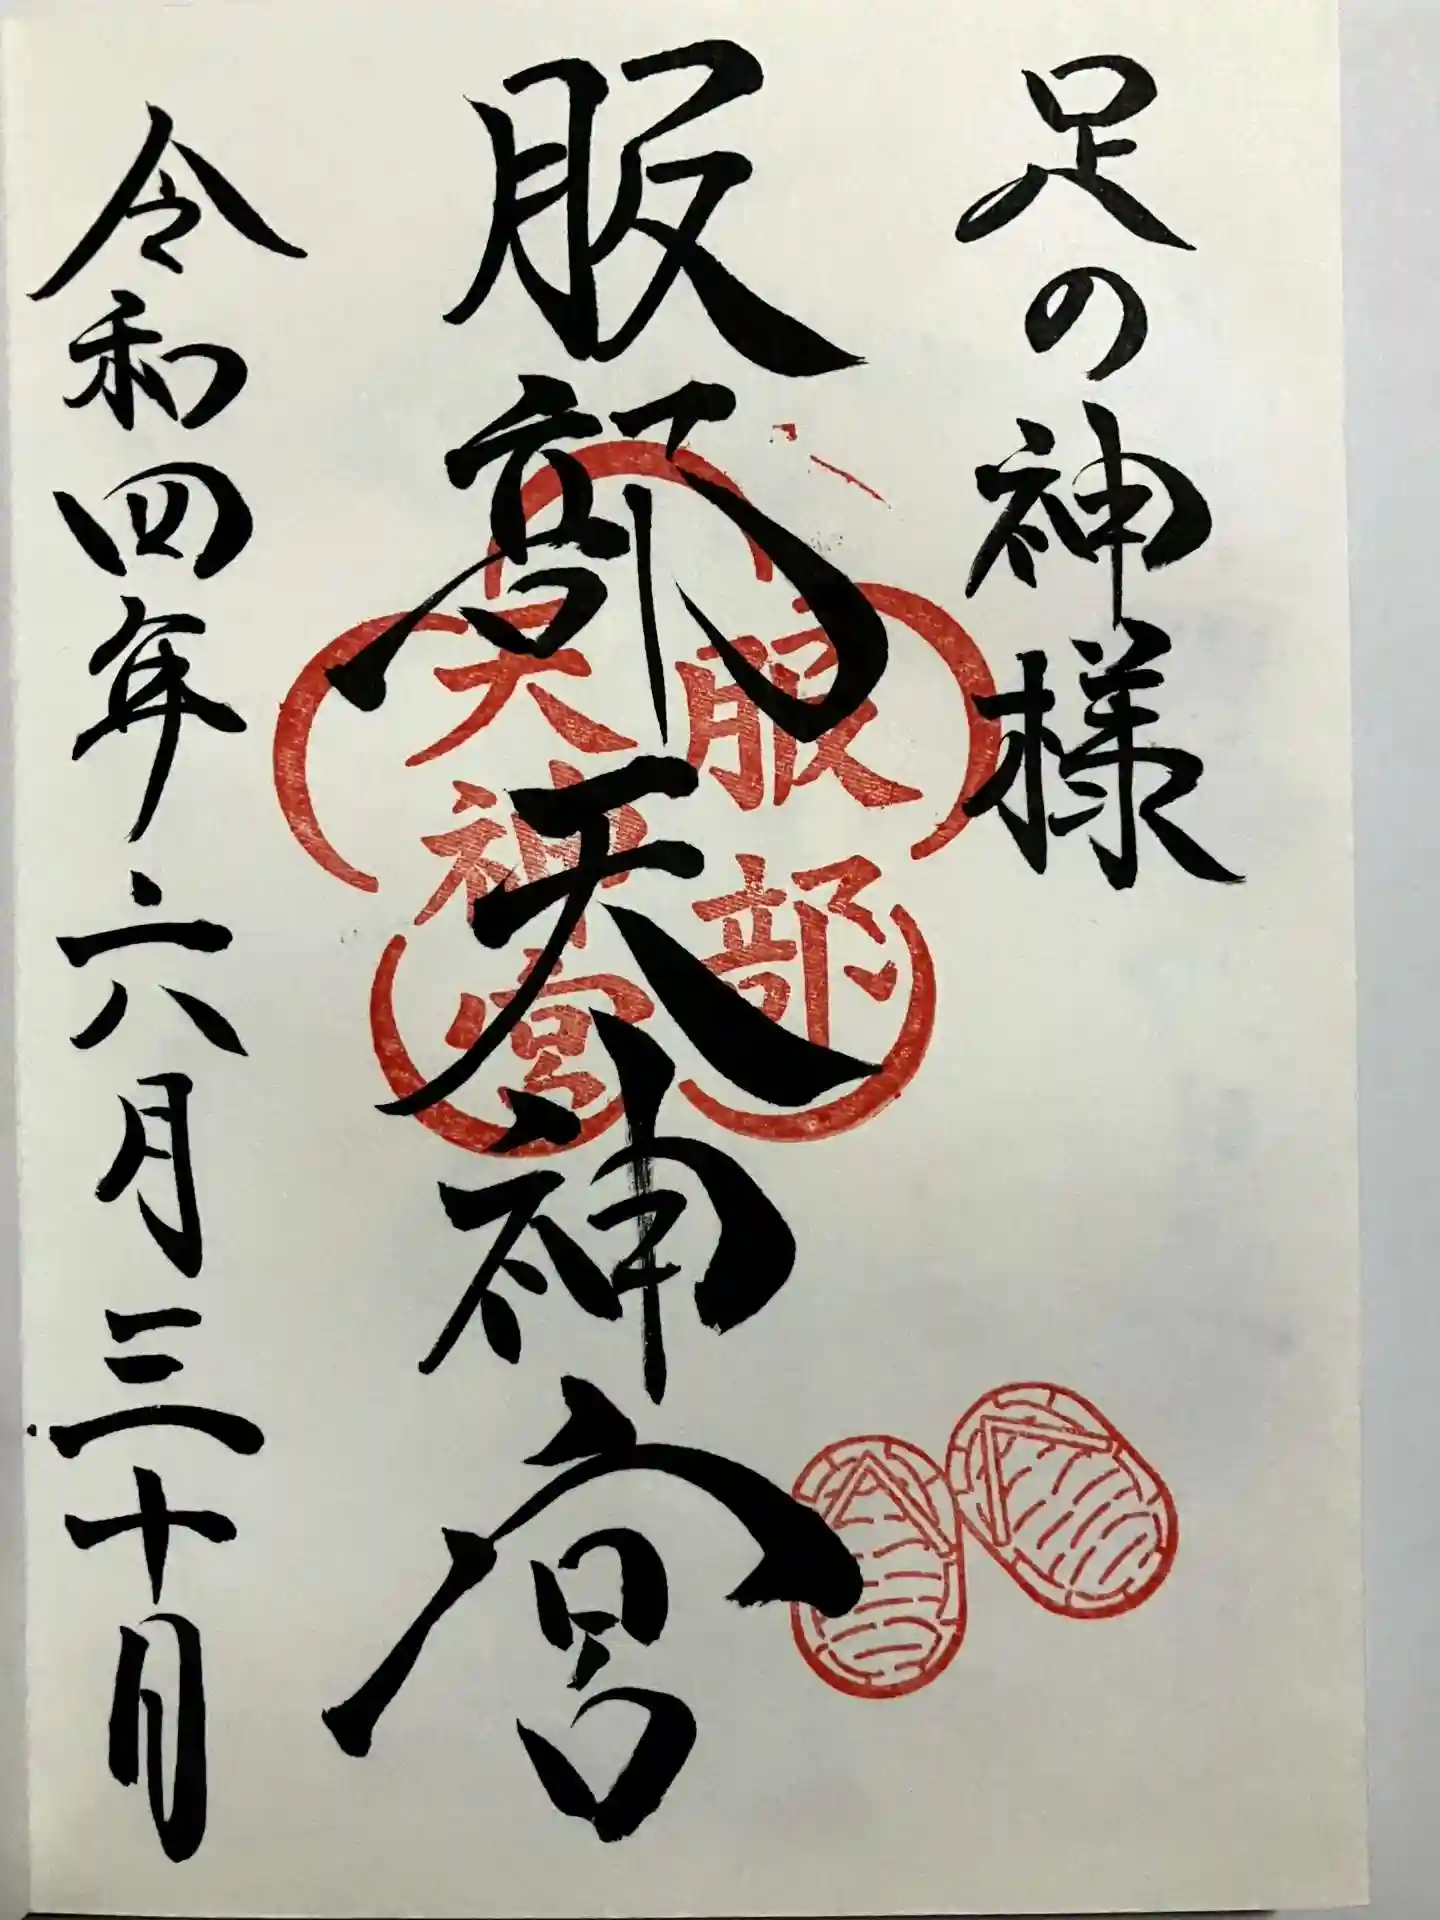 足の神様
服部天神宮
服部
天神宮
令和四年六月三十日